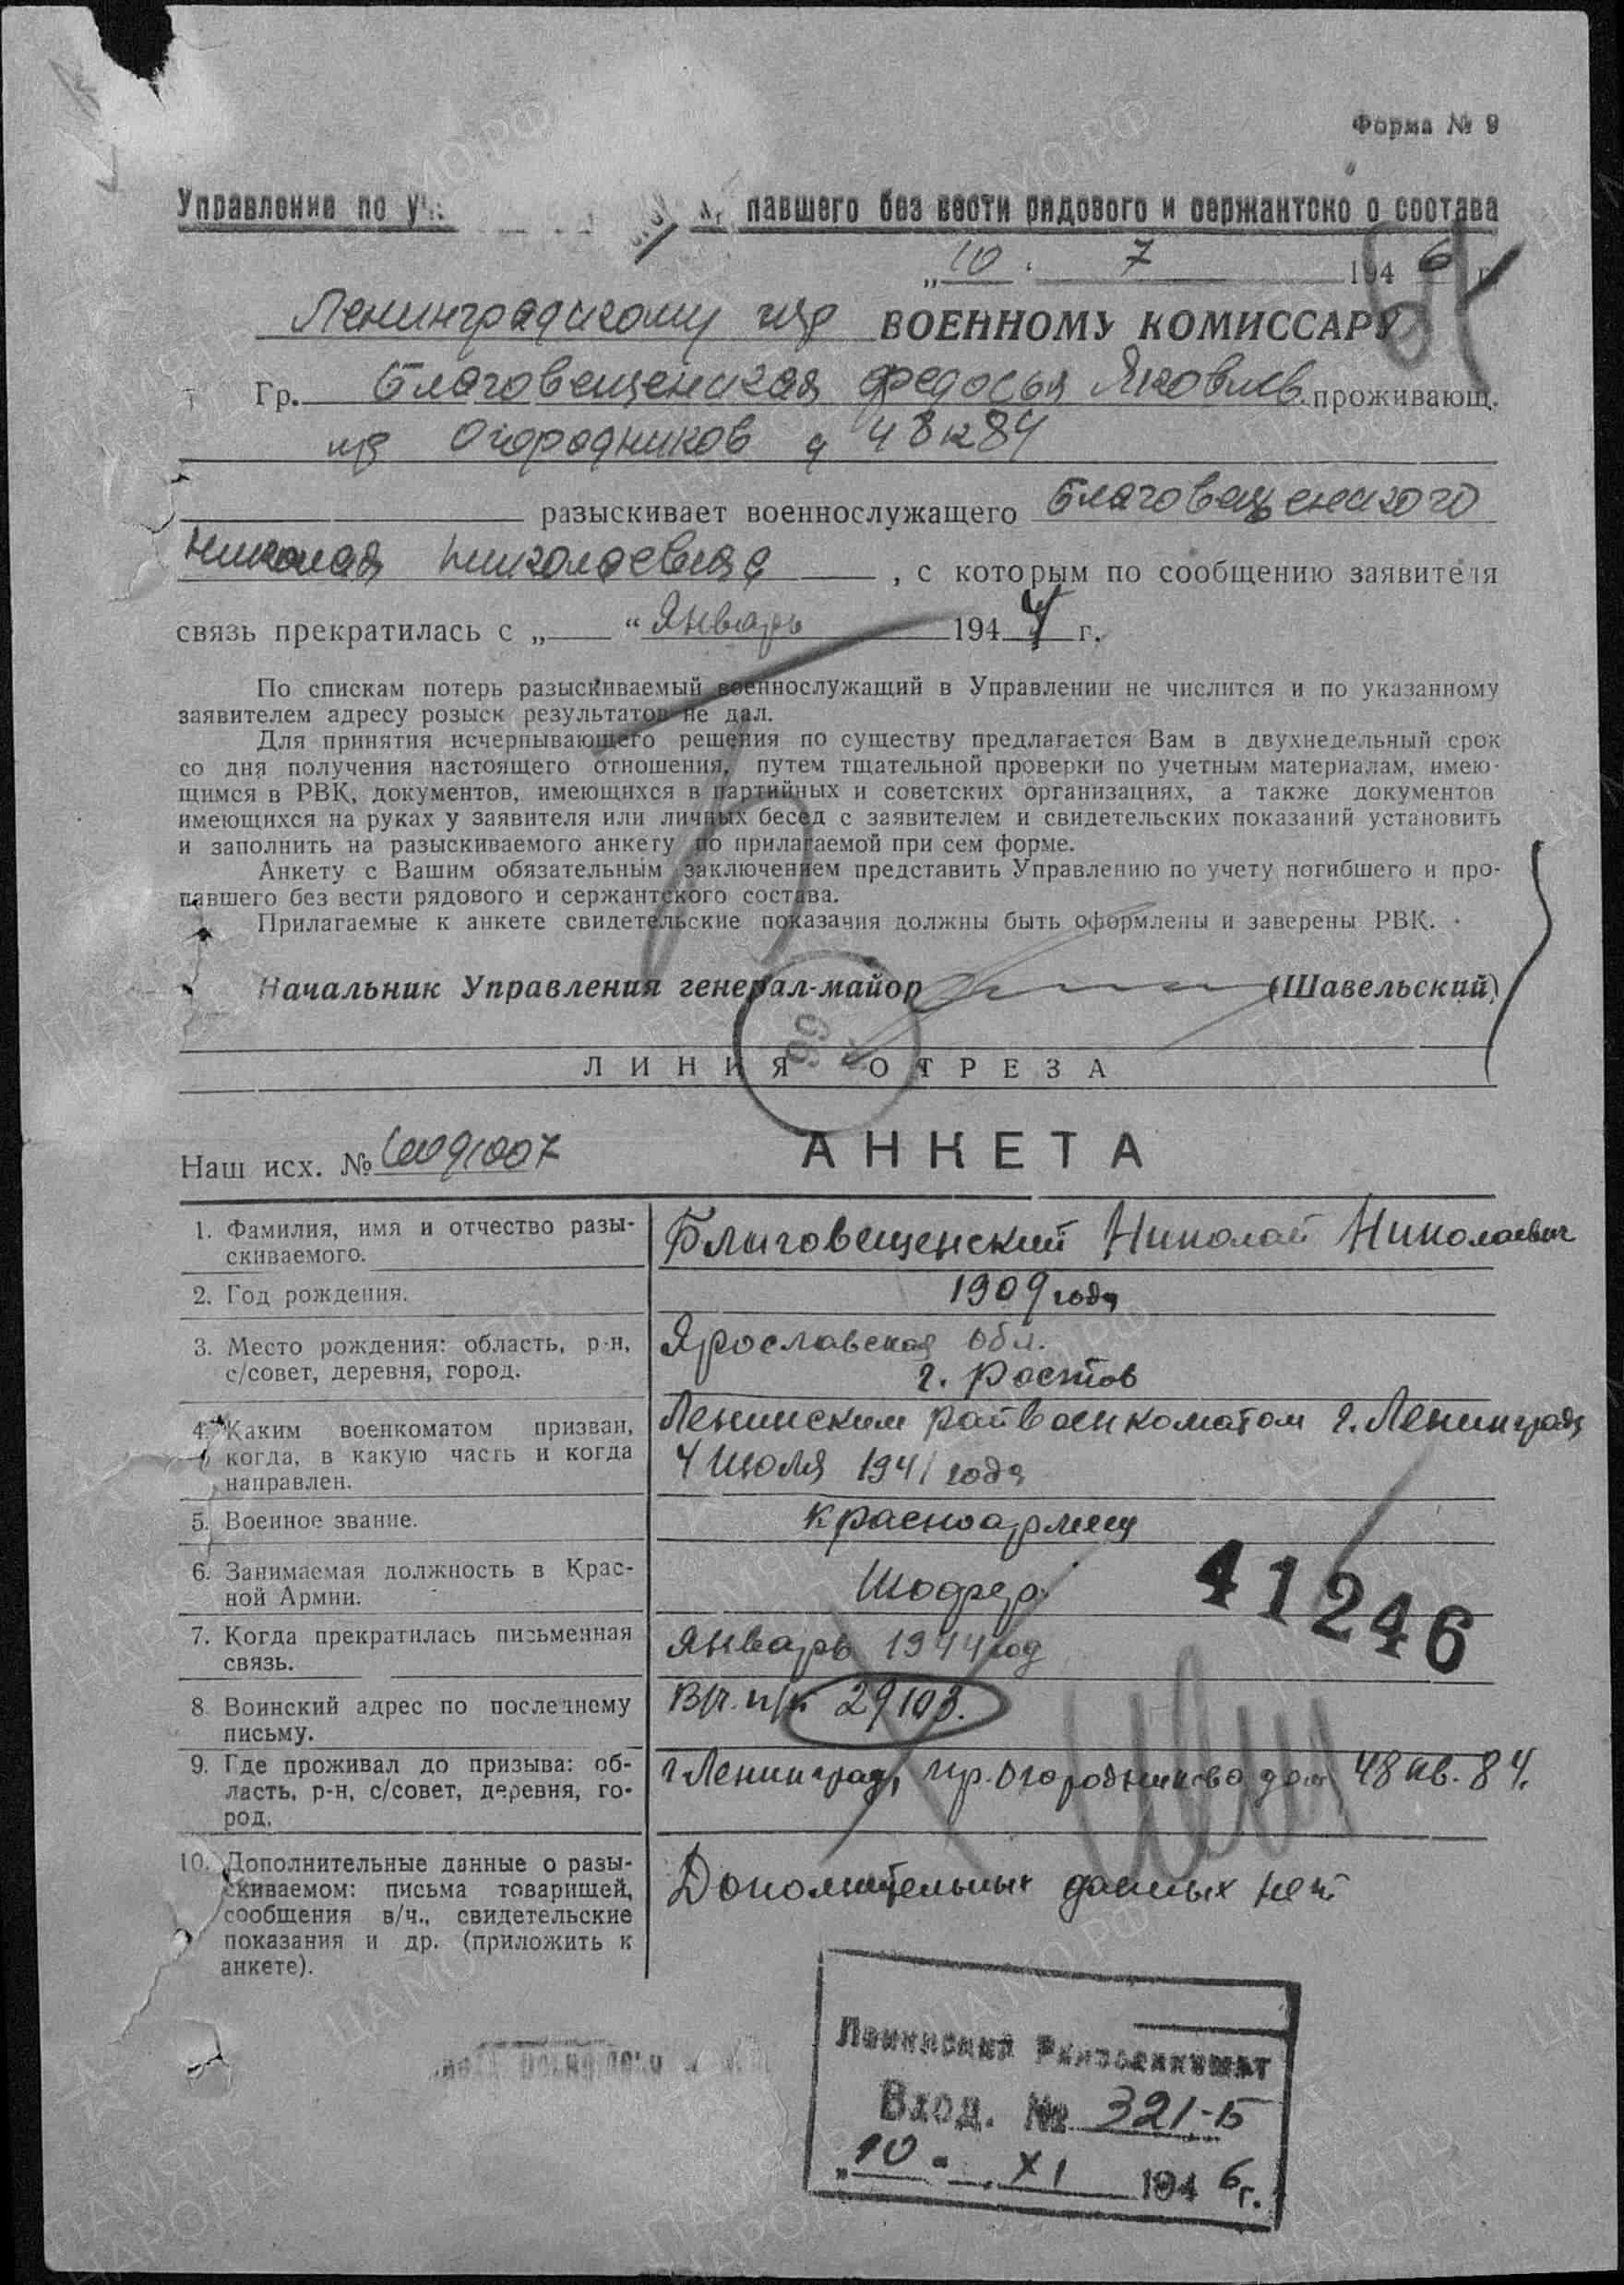 Форма № 9
Управление по уч павшего без вести рядового и сержантско о состава
„10. 7 1946 г.
Ленинградскому гор ВОЕННОМУ КОМИССАРУ
Гр. Благовещенская Федосья Яковлев. проживающ.
пр Огородников д 48 к 84
разыскивает военнослужащего Благовещенского
Николая Николаевича, с которым по сообщению заявителя
связь прекратилась с „ “ Январь 1944 г.
По спискам потерь разыскиваемый военнослужащий в Управлении не числится и по указанному
заявителем адресу розыск результатов не дал.
Для принятия исчерпывающего решения по существу предлагается Вам в двухнедельный срок
со дня получения настоящего отношения, путем тщательной проверки по учетным материалам, имею-
щимся в РВК, документов, имеющихся в партийных и советских организациях, а также документов
имеющихся на руках у заявителя или личных бесед с заявителем и свидетельских показаний установить
и заполнить на разыскиваемого анкету по прилагаемой при сем форме.
Анкету с Вашим обязательным заключением представить Управлению по учету погибшего и про-
павшего без вести рядового и сержантского состава.
Прилагаемые к анкете свидетельские показания должны быть оформлены и заверены РВК.
Начальник Управления генерал-майор (Шавельский)
99
ЛИНИЯ ОТРЕЗА
Наш исх. № 6091007
АНКЕТА
1. Фамилия, имя и отчество разы-
скиваемого.
Благовещенский Николай Николаевич
2. Год рождения.
1909 года
3. Место рождения: область, р-н,
с/совет, деревня, город.
Ярославская обл.
г. Ростов
4. Каким военкоматом призван,
когда, в какую часть и когда
направлен.
Ленинским райвоенкоматом г. Ленинграда
4 Июля 1941 года
5. Военное звание.
Красноармеец
6. Занимаемая должность в Крас-
ной Армии.
Шофер
41246
7. Когда прекратилась письменная
связь.
Январь 1944 год
8. Воинский адрес по последнему
письму.
В/ч. п/п 29103.
9. Где проживал до призыва: об-
ласть, р-н, с/совет, деревня, го-
род.
г Ленинград, пр. Огородникова дом 48 кв. 84.
10. Дополнительные данные о разы-
скиваемом: письма товарищей,
сообщения в/ч., свидетельские
показания и др. (приложить к
анкете).
Дополнительных данных нет
Ленинский Райвоенкомат
Вход. № 321-Б
„10“ XI 1946 г.